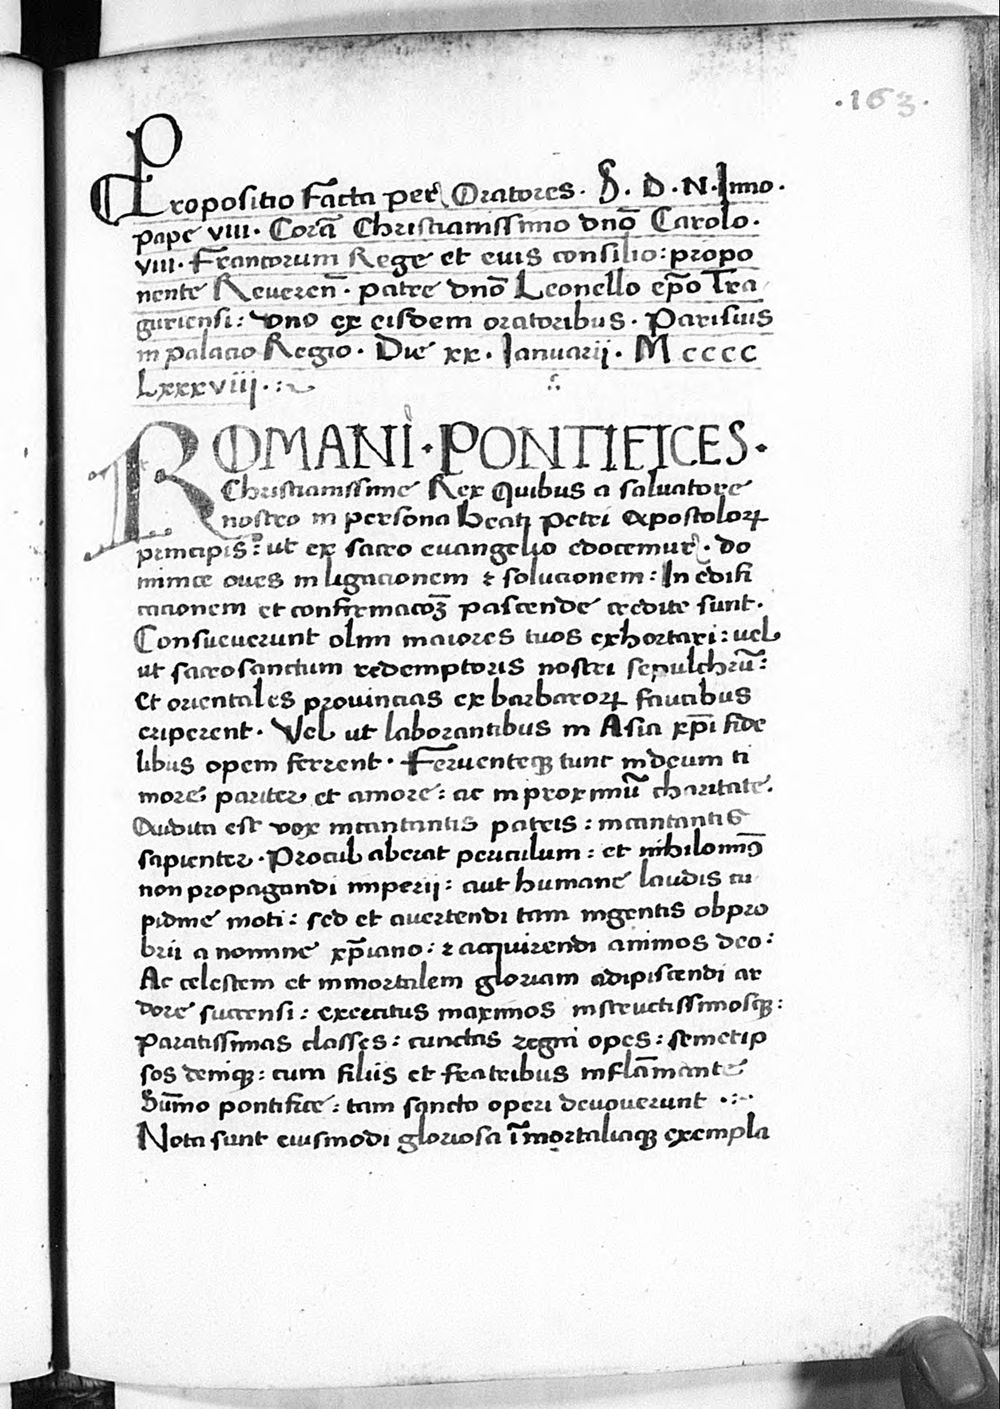 .163.
Propositio Facta per Oratores. S. D. N. Inno.
pape viii. Corā Christianissimo dnō Carolo.
viii. Francorum Rege et euis consilio: propo
nente Reueren̄. patre dnō Leonello ep̄o Tra
guriensi: vno ex eisdem oratoribus. Parisius
in palacio Regio. Die xx. Ianuarij. M cccc
Lxxxviij.
ROMANI. PONTIFICES.
Christianissime Rex Quibus a saluatore
nostro in persona beati Petri Apostolorꝝ
principis: ut ex sacro euangelio edocemur. do
minice oues in ligacionem ⁊ solucionem: In edifi
cacionem et confirmacōꝫ pascende credite sunt.
Consueuerunt olim maiores tuos exhortari: uel
ut sacrosanctum redemptoris nostri sepulchrū:
Et orientales prouincias ex barbarorꝝ faucibus
eriperent. Vel ut laborantibus in Asia xp̄i fide
libus opem ferrent. Feruenteqꝫ tunc in deum ti
more pariter et amore: ac in proximū charitate.
Audita est vox incantantis patris: incantantis
sapienter. Procul aberat periculum: et nihilomiꝰ
non propagandi imperij: aut humane laudis cu
pidine moti: sed et auertendi tam ingentis obpro
brii a nomine xp̄iano: ⁊ acquirendi animos deo:
Ac celestem et inmortalem gloriam adipiscendi ar
dore succensi: exercitus maximos instructissimosqꝫ:
Paratissimas classes: cunctas regni opes: semetip
sos deniqꝫ: cum filiis et fratribus inflāmante
Sūmo pontifice: tam sancto operi deuouerunt .:.
Nota sunt eiusmodi gloriosa īmortaliaqꝫ exempla